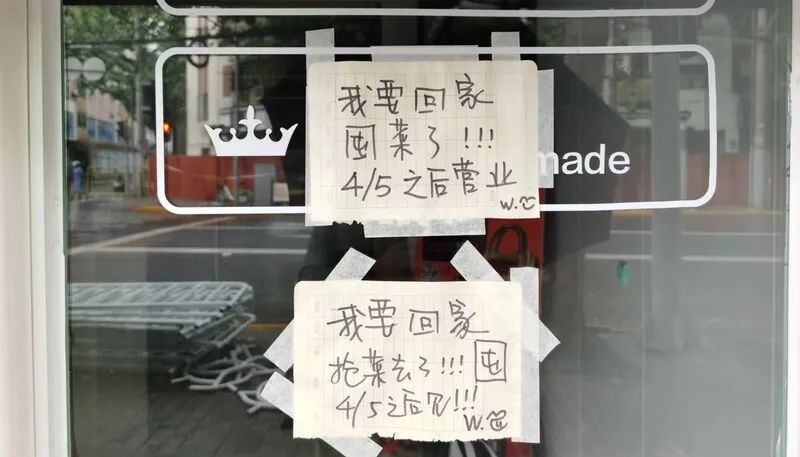 我要回家
囤菜了!!!
4/5之后营业
W.
made
我要回家
抢菜去了!!! 囤
4/5之后见!!!
W.